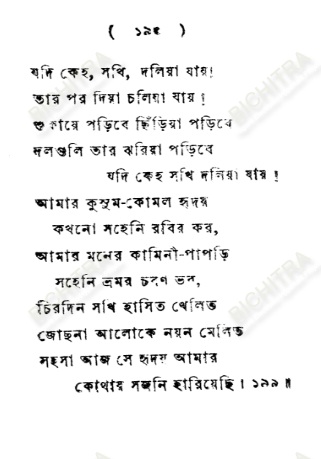 ( ১৯৫ )
যদি কেহ, সখি, দলিয়া যায়!
তার পর দিয়া চলিয়া যায়!
শুকায়ে পড়িবে ছিঁড়িয়া পড়িবে
দলগুলি তার ঝরিয়া পড়িবে
যদি কেহ সখি দলিয়া যায়!
আমার কুসুম-কোমল হৃদয়
কখনো সহেনি রবির কর,
আমার মনের কামিনী-পাপড়ি
সহেনি ভ্রমর চরণ ভর,
চিরদিন সখি হাসিত খেলিত
জোছনা আলোকে নয়ন মেলিত
সহসা আজ সে হৃদয় আমার
কোথায় সজনি হারিয়েছি। ১৯৯॥
BICHITRA
BICHITRA
BICHITRA
BICHITRA